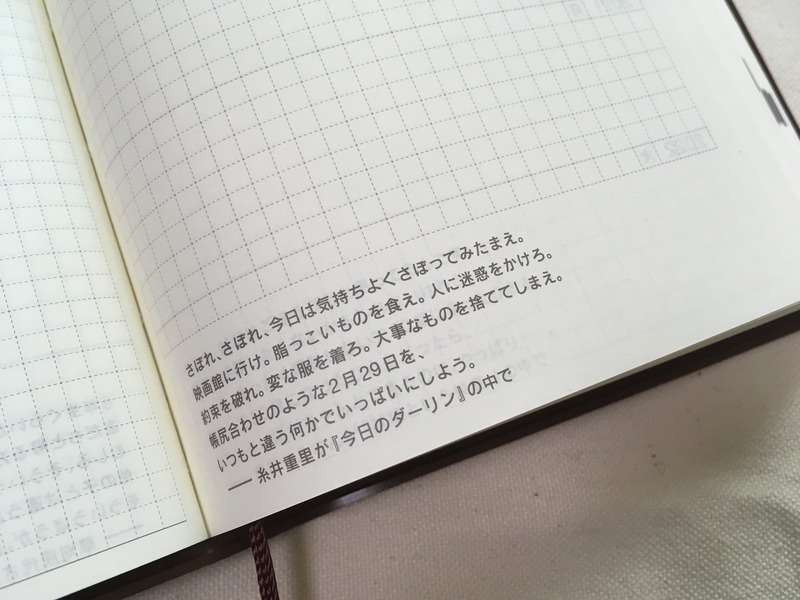 さぼれ、さぼれ、今日は気持ちよくさぼってみたまえ。
映画館に行け。脂っこいものを食え。人に迷惑をかけろ。
約束を破れ。変な服を着ろ。大事なものを捨ててしまえ。
帳尻合わせのような2月29日を、
いつもと違う何かでいっぱいにしよう。
── 糸井重里が『今日のダーリン』の中で